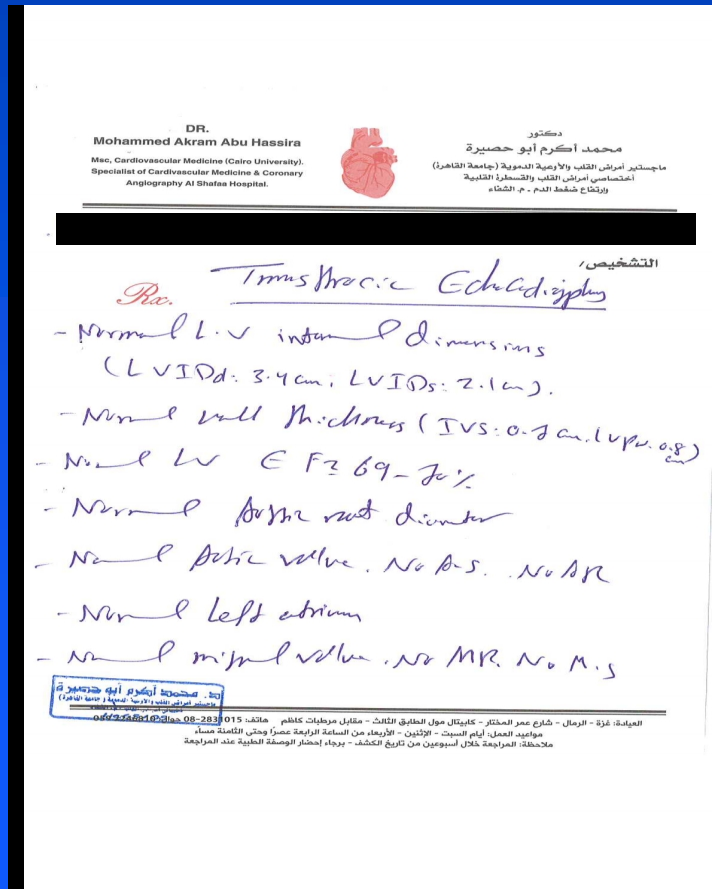 DR.
Mohammed Akram Abu Hassira
Msc, Cardiovascular Medicine (Cairo University).
Specialist of Cardivascular Medicine & Coronary
Angiography Al Shafaa Hospital.
دكتور
محمد أكرم أبو حصيرة
ماجستير أمراض القلب والأوعية الدموية (جامعة القاهرة)
أختصاصي أمراض القلب والقسطرة القلبية
وارتفاع ضغط الدم - م. الشفاء
التشخيص،
Rx.
Transthoracic Echocardiography
- Normal L.V internal dimensions
(LVIDd: 3.4 cm; LVIDs: 2.1 cm).
- Normal wall thickness (IVS: cm, LVPW. 0.8 cm)
- Normal LV EF 69-70%
- Normal Aortic root diameter
- Normal Aortic valve. No A.S. No AR
- Normal left atrium
- Normal mitral valve. No MR. No M.S
د. محمد أكرم أبو حصيرة
ماجستير أمراض القلب والأوعية الدموية (جامعة القاهرة)
العيادة: غزة - الرمال - شارع عمر المختار - كابيتال مول الطابق الثالث - مقابل مرطبات كاظم هاتف: 2831015-08 جوال:
مواعيد العمل: أيام السبت - الإثنين - الأربعاء من الساعة الرابعة عصراً وحتى الثامنة مساءً
ملاحظة: المراجعة خلال أسبوعين من تاريخ الكشف - برجاء إحضار الوصفة الطبية عند المراجعة